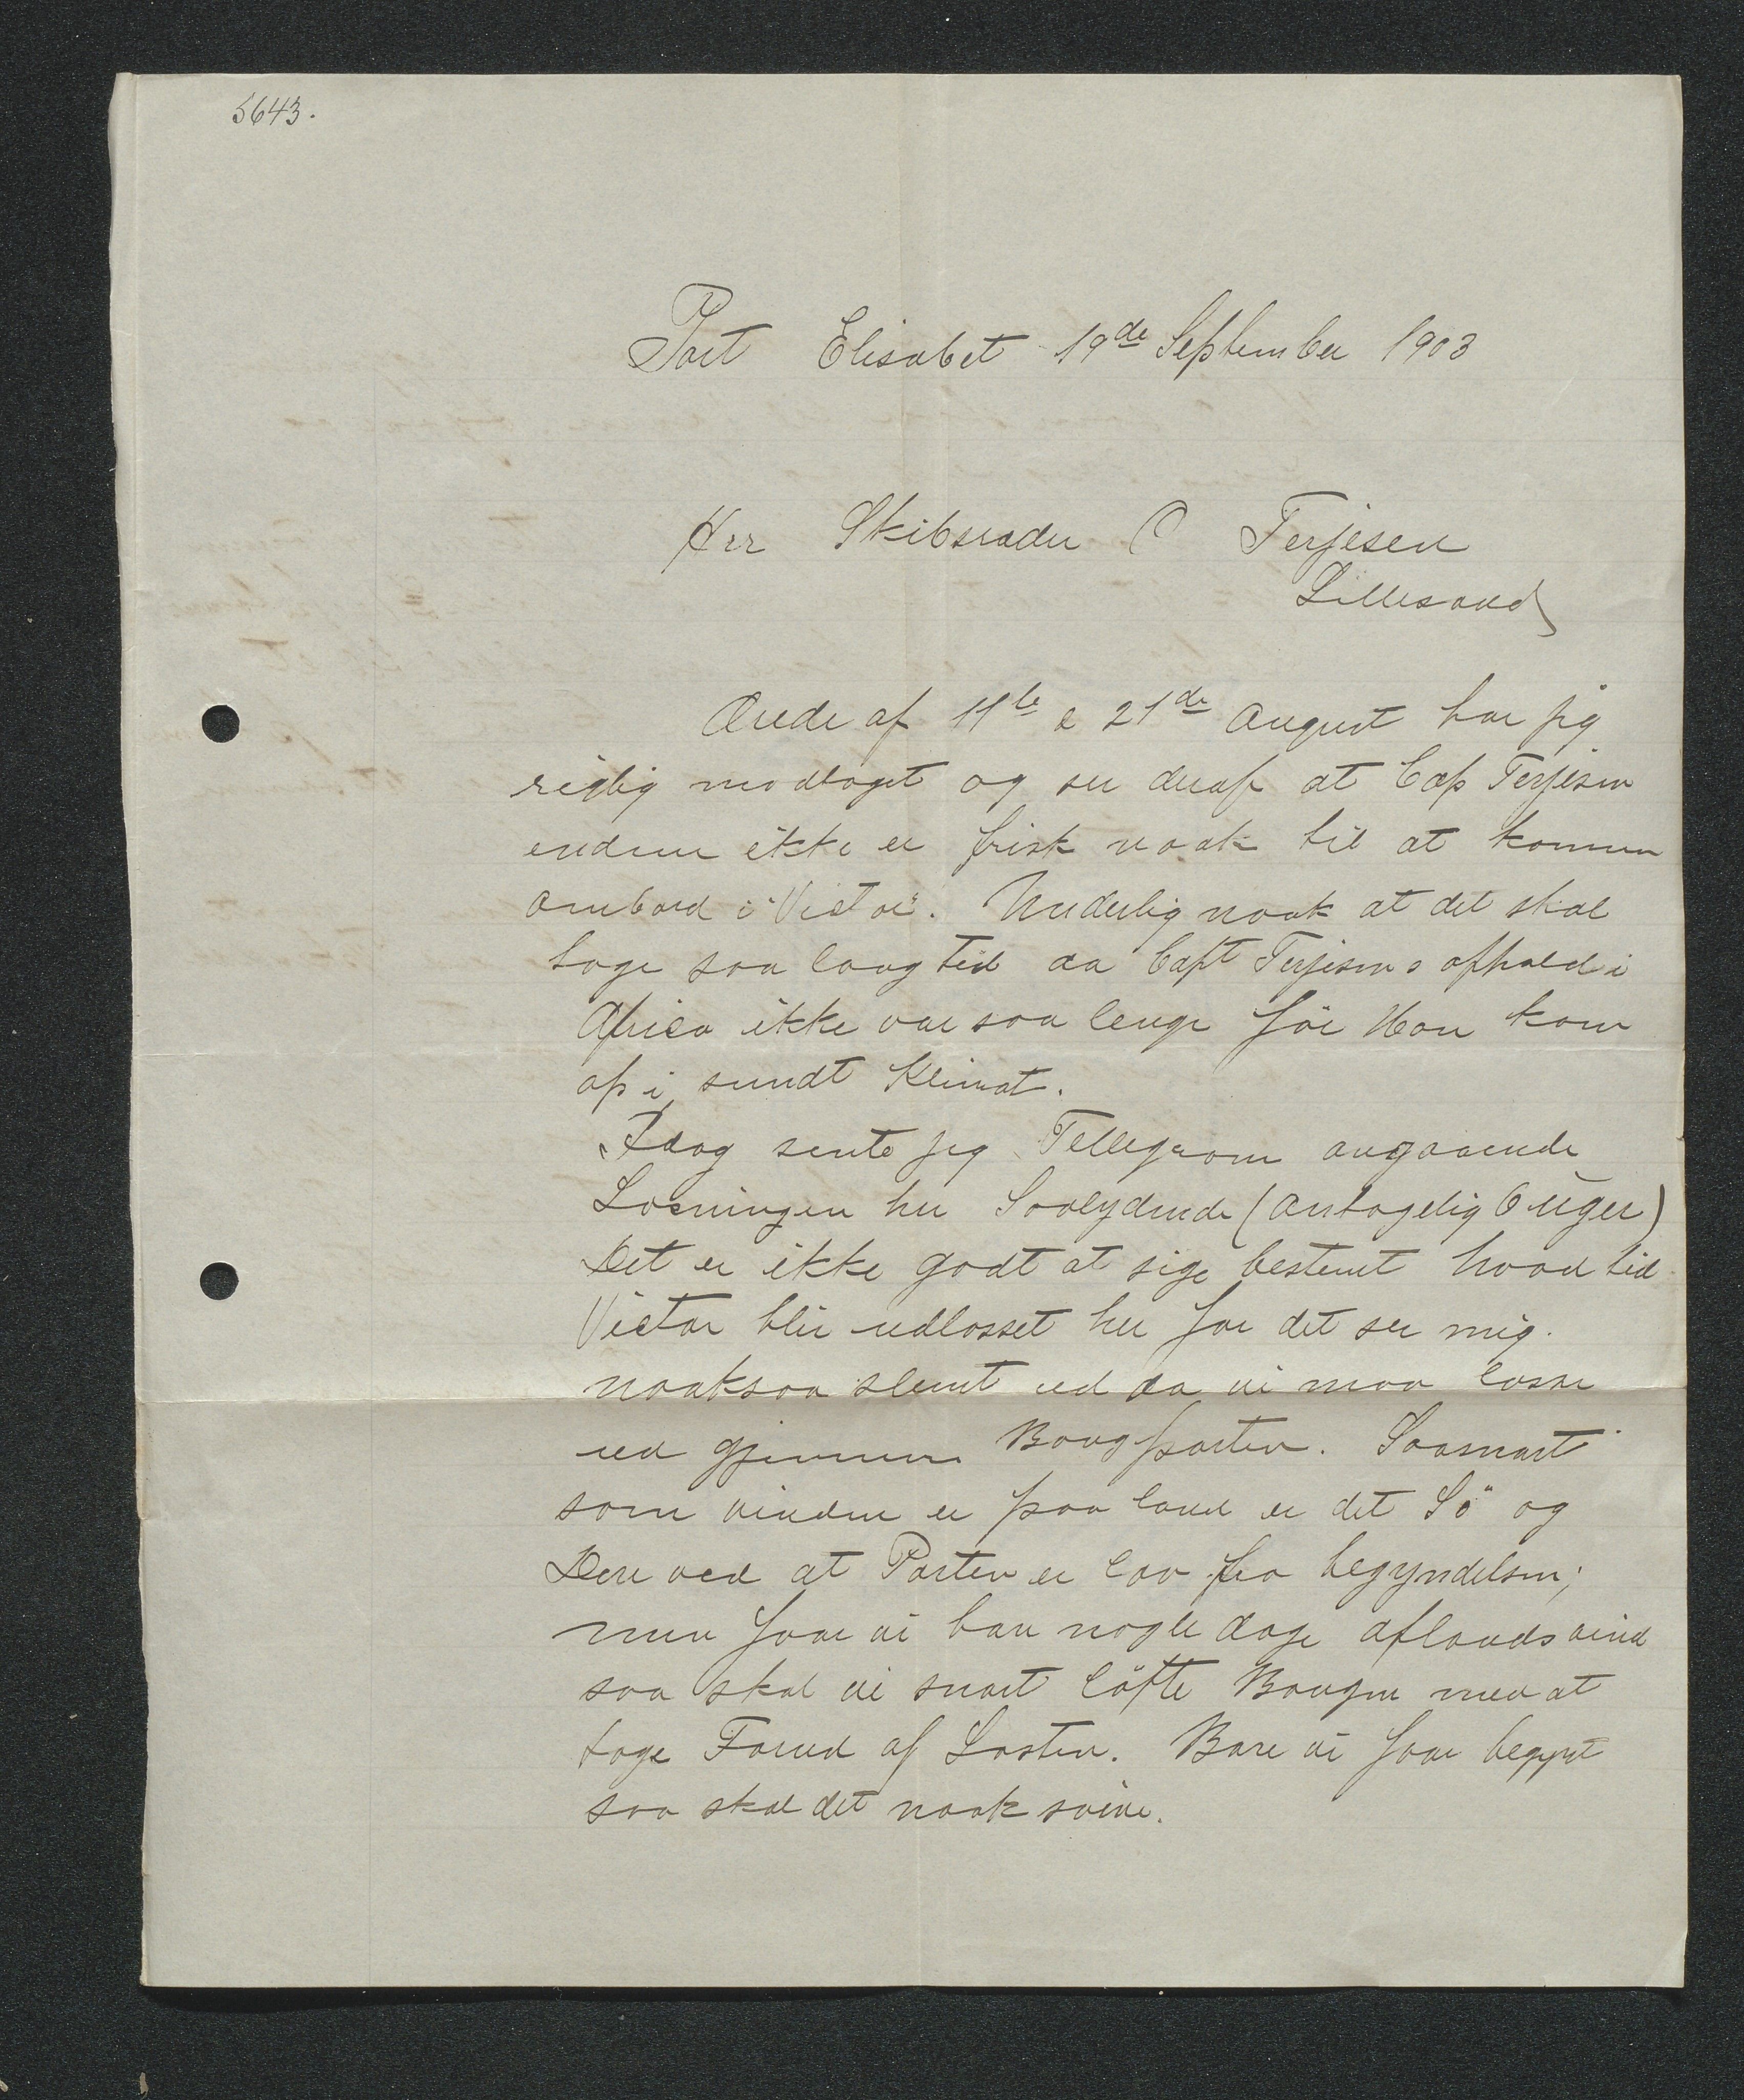 5643.
Port Elisabet 19de September 1903
Herr Skibsreder O Terjesen
Lillesand
Ærede af 11te & 21de August har jeg
rigtig modtaget og ser deraf at Cap Terjesen
endnu ikke er frisk noak til at komme
ombord i "Victor". Underlig noak at det skal
tage saa lang tid da Capt Terjesens ophold i
Africa ikke var saa lenge för Han kom
op i sundt Klimat.
Idag sente jeg Tellegram angaaende
Losningen her Saalydende (antagelig 6 uger)
Det er ikke godt at sige bestemt hvad tid
Victor blir udlosset her for det ser mig
noaksaa slemt ud da vi maa losse
ud gjennem Bougporten. Saasnart
som vinden er paa land er det Sö og
Dere ved at Porten er lav fra begyndelsen;
men faar vi bare nogle dage aflandsvind
saa skal vi snart löfte Bougen med at
tage Forud af Lasten. Bare vi faar begynt
saa skal det noak svive.